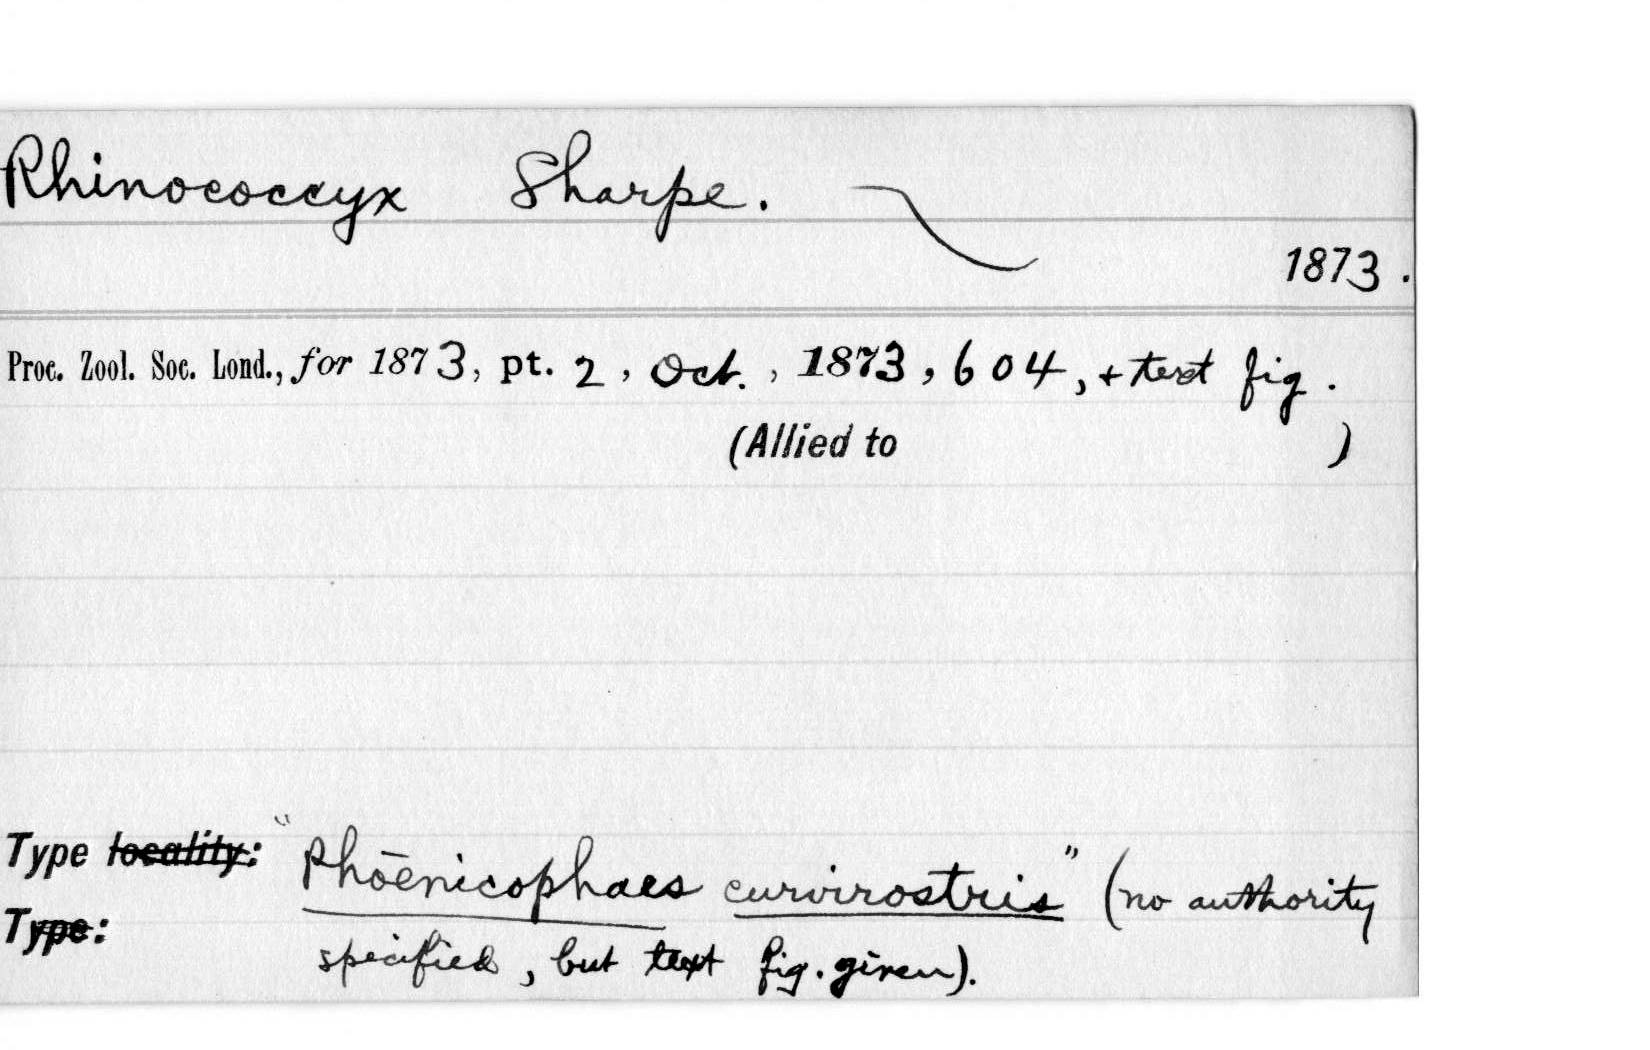 Rhinococcyx Sharpe.
1873.
Proc. Zool. Soc. Lond., for 1873, pt. 2, Oct., 1873, 604, + text fig.
(Allied to )
Type locality: "Phoenicophaes curvirostris" (no authority
Type: specified, but text fig. given).